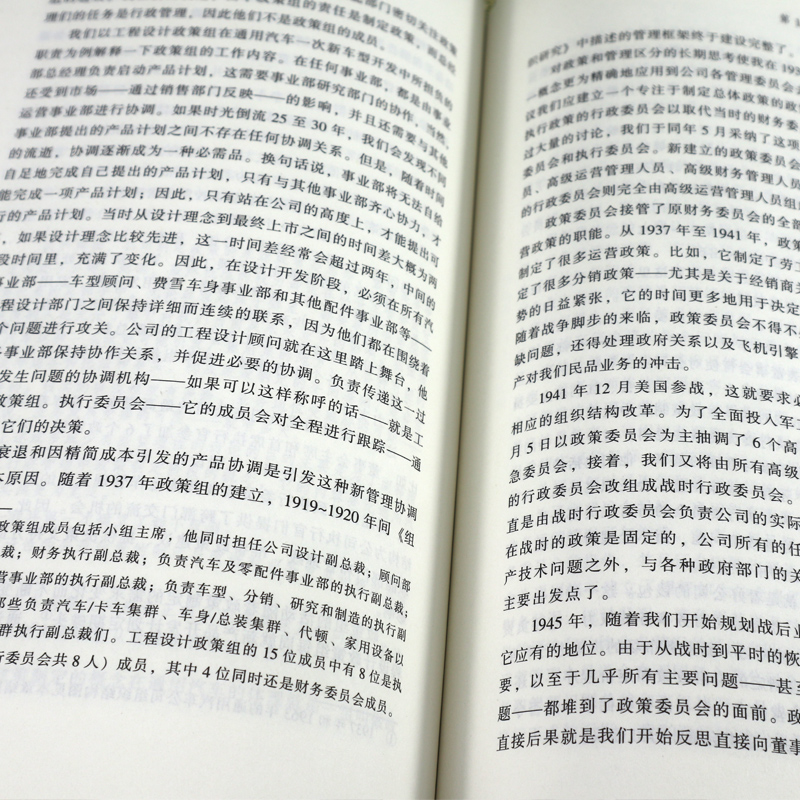 部门密切关注政策
理们的任务是行政管理，因此他们不是政策组的成员。
我们以工程设计政策组在通用汽车一次新车型开发中所担负的
职责为例解释一下政策组的工作内容。在任何事业部，都是由事业
部总经理负责启动产品计划，这需要事业部研究部门的协作，当然，
还受到市场——通过销售部门反映——的影响，并且还需要与其他
运营事业部进行协调。如果时光倒流 25 至 30 年，我们会发现不同
事业部提出的产品计划之间不存在任何协调关系。但是，随着时间
的流逝，协调逐渐成为一种必需品。换句话说，事业部将无法自给
自足地完成自己提出的产品计划，只有与其他事业部齐心协力，才
能完成一项产品计划；因此，只有站在公司的高度上，才能提出可
行的产品计划。当时从设计理念到最终上市之间的时间差大概为两
，如果设计理念比较先进，这一时间差经常会超过两年，中间的
段时间里，充满了变化。因此，在设计开发阶段，必须在所有汽
事业部——车型顾问、费雪车身事业部和其他配件事业部等——
程设计部门之间保持详细而连续的联系，因为他们都在围绕着
个问题进行攻关。公司的工程设计顾问就在这里踏上舞台，他
事业部保持协作关系，并促进必要的协调。负责传递这一过
发生问题的协调机构——如果可以这样称呼的话——就是工
政策组。执行委员会——它的成员会对全程进行跟踪——通
它们的决策。
衰退和因精简成本引发的产品协调是引发这种新管理协调
原因。随着 1937 年政策组的建立，1919~1920 年间《组
政策组成员包括小组主席；他同时担任公司设计副总裁；顾问部
裁；财务执行副总裁；负责汽车及零配件事业部的执行副总裁；
营事业部的执行副总裁；负责车型、分销、研究和制造的执行副
那些负责汽车/卡车集群、车身/总装集群、代顿、家用设备以
群执行副总裁们。工程设计政策组的 15 位成员中有 8 位是执
行委员会共 8 人）成员，其中 4 位同时还是财务委员会成员。
织研究》中描述的管理框架终于建设完整了。
对政策和管理区分的长期思考使我在 19
一概念更为精确地应用到公司各管理委员会
议我们应建立一个专注于制定总体政策的政
执行政策的行政委员会以取代当时的财务委
过大量的讨论，我们于同年 5 月采纳了这项
委员会和执行委员会。新建立的政策委员会
员、高级运营管理人员、高级财务管理人员
的行政委员会则完全由高级运营管理人员组
政策委员会接管了原财务委员会的全部
营政策的职能。从 1937 年至 1941 年，政策
制定了很多运营政策。比如，它制定了劳工
定了很多分销政策——尤其是关于经销商关
势的日益紧张，它的时间更多地用于决定
随着战争脚步的来临，政策委员会不得不
缺问题，还得处理政府关系以及飞机引擎
产对我们民品业务的冲击。
1941 年 12 月美国参战，这就要求必
相应的组织结构改革。为了全面投入军工
月 5 日以政策委员会为主抽调了 6 个高
急委员会，接着，我们又将由所有高级
的行政委员会改组成战时行政委员会。
直是由战时行政委员会负责公司的实际
在战时的政策是固定的，公司所有的任
产技术问题之外，与各种政府部门的关
主要出发点了。
1945 年，随着我们开始规划战后业
它应有的地位。由于从战时到平时的恢
要，以至于几乎所有主要问题——甚至
题——都堆到了政策委员会的面前。政
直接后果就是我们开始反思直接向董事